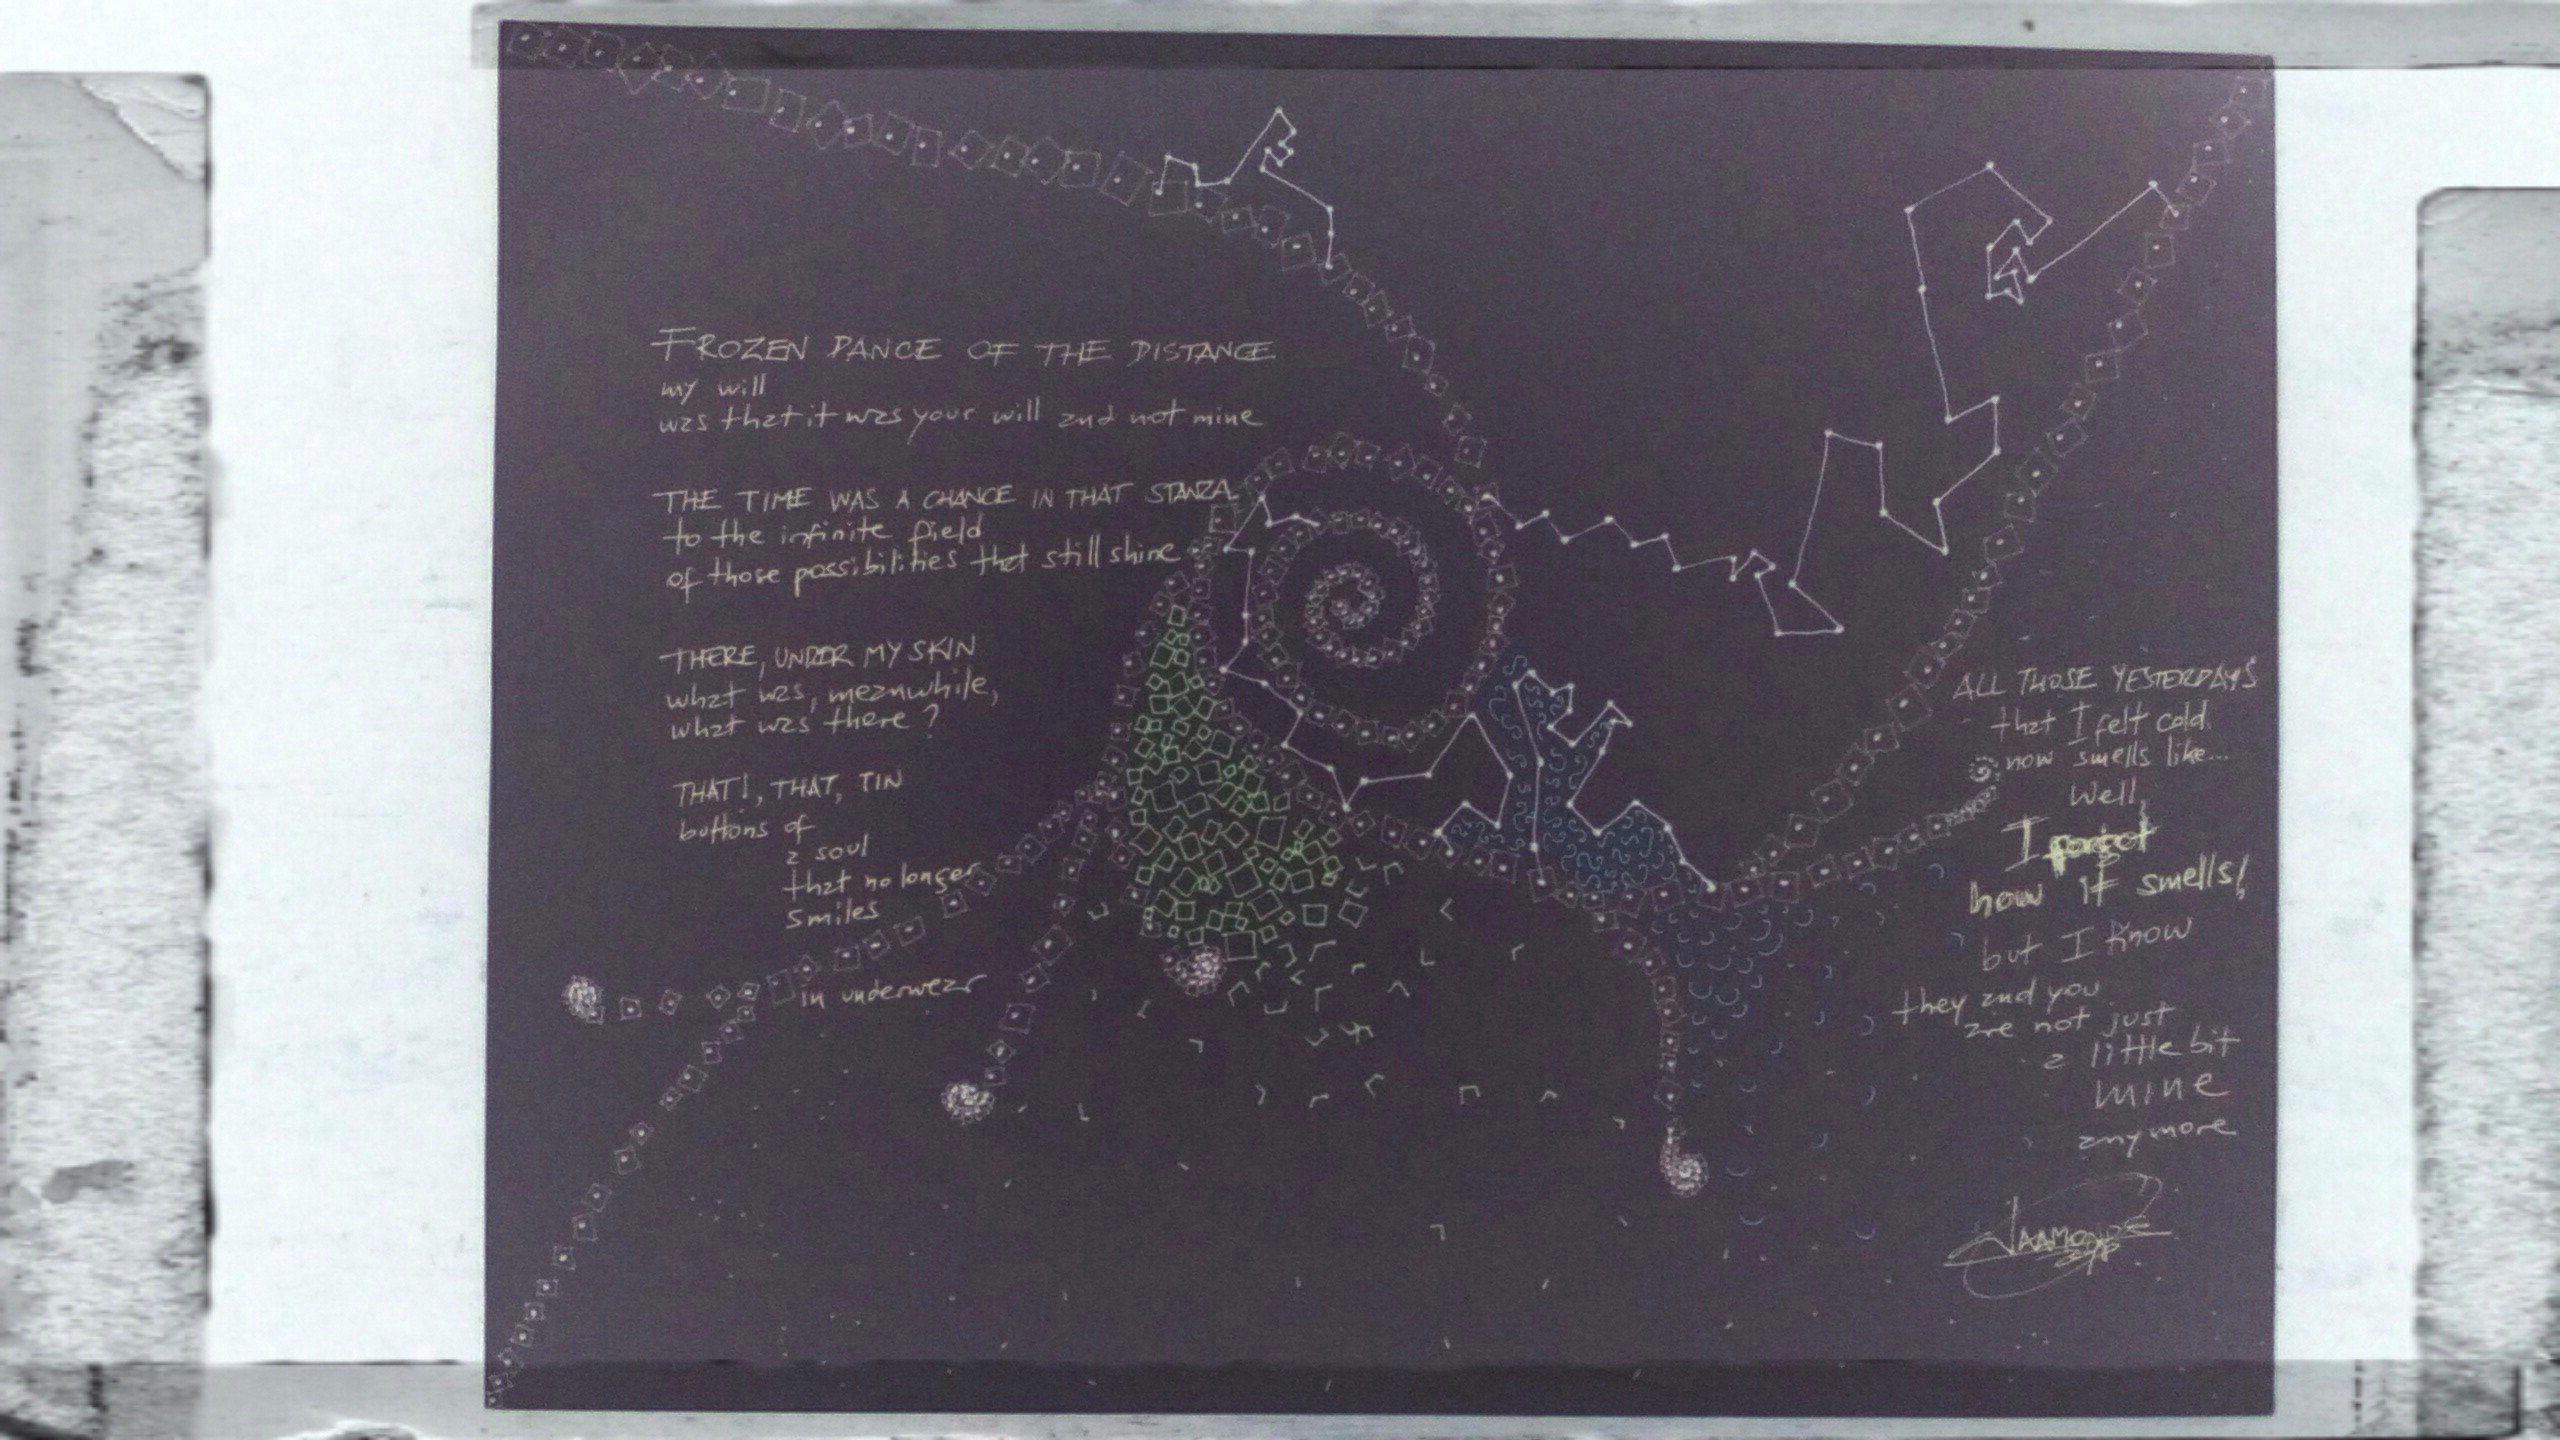 FROZEN DANCE OF THE DISTANCE
my will
was that it was your will and not mine
THE TIME WAS A CHANCE IN THAT STANZA
to the infinite field
of those possibilities that still shine
THERE, UNDER MY SKIN
what was, meanwhile,
what was there?
THAT!, THAT, TIN
buttons of
a soul
that no longer
smiles
in underwear
ALL THOSE YESTERDAYS
that I felt cold
now smells like...
Well,
I forgot
how it smells!
but I know
they and you
are not just
a little bit
mine
anymore
VAAMONDE